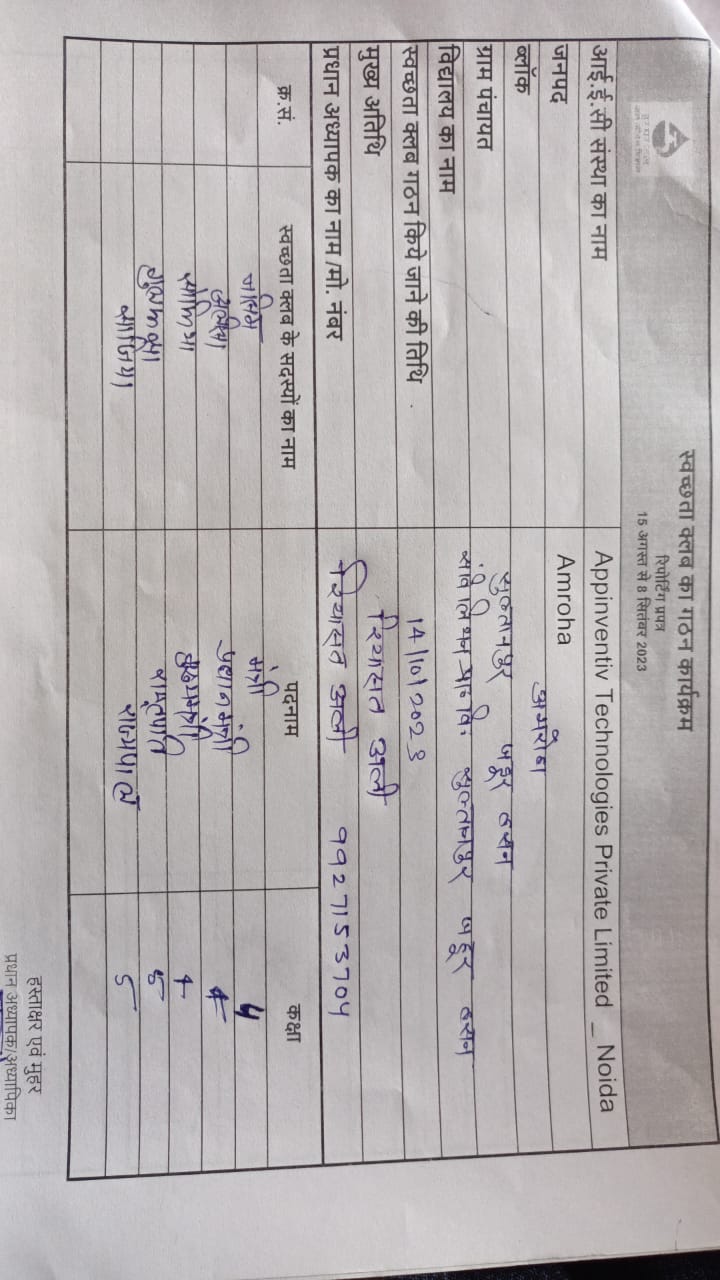 स्वच्छता क्लब का गठन कार्यक्रम
रिपोर्टिंग प्रपत्र
15 अगस्त से 8 सितंबर 2023
आई.ई.सी संस्था का नाम Appinventiv Technologies Private Limited _ Noida
जनपद Amroha
ब्लॉक अमरोहा
ग्राम पंचायत सुल्तानपुर जहूर हसन
विद्यालय का नाम संविलियन प्रा० वि० सुल्तानपुर जहूर हसन
स्वच्छता क्लब गठन किये जाने की तिथि 14/10/2023
मुख्य अतिथि रियासत अली
प्रधान अध्यापक का नाम /मो. नंबर रियासत अली 9927153704
क्र.सं. स्वच्छता क्लब के सदस्यों का नाम पदनाम कक्षा
मंत्री
प्रधानमंत्री
गृहमंत्री
राष्ट्रपति
राज्यपाल 5
हस्ताक्षर एवं मुहर
प्रधान अध्यापक/अध्यापिका